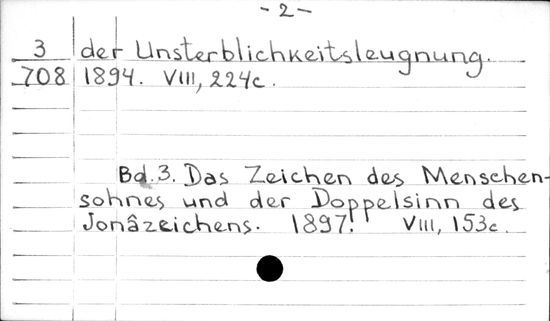 - 2 -
3 der Unsterblichkeitsleugnung.
708 1894. VIII, 224c.
Bd. 3. Das Zeichen des Menschen-
sohnes und der Doppelsinn des
Jonâzeichens. 1897. VIII, 153c.